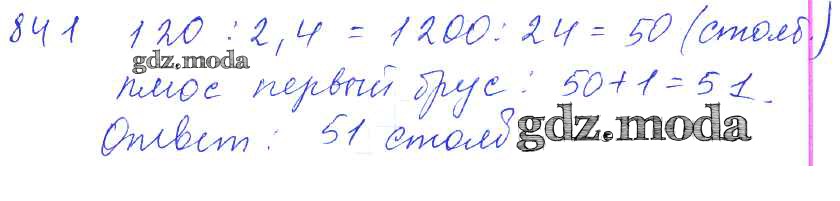 841 120 : 2,4 = 1200 : 24 = 50 (столб.)
gdz.moda
плюс первый брус: 50+1=51.
Ответ: 51 столб
gdz.moda